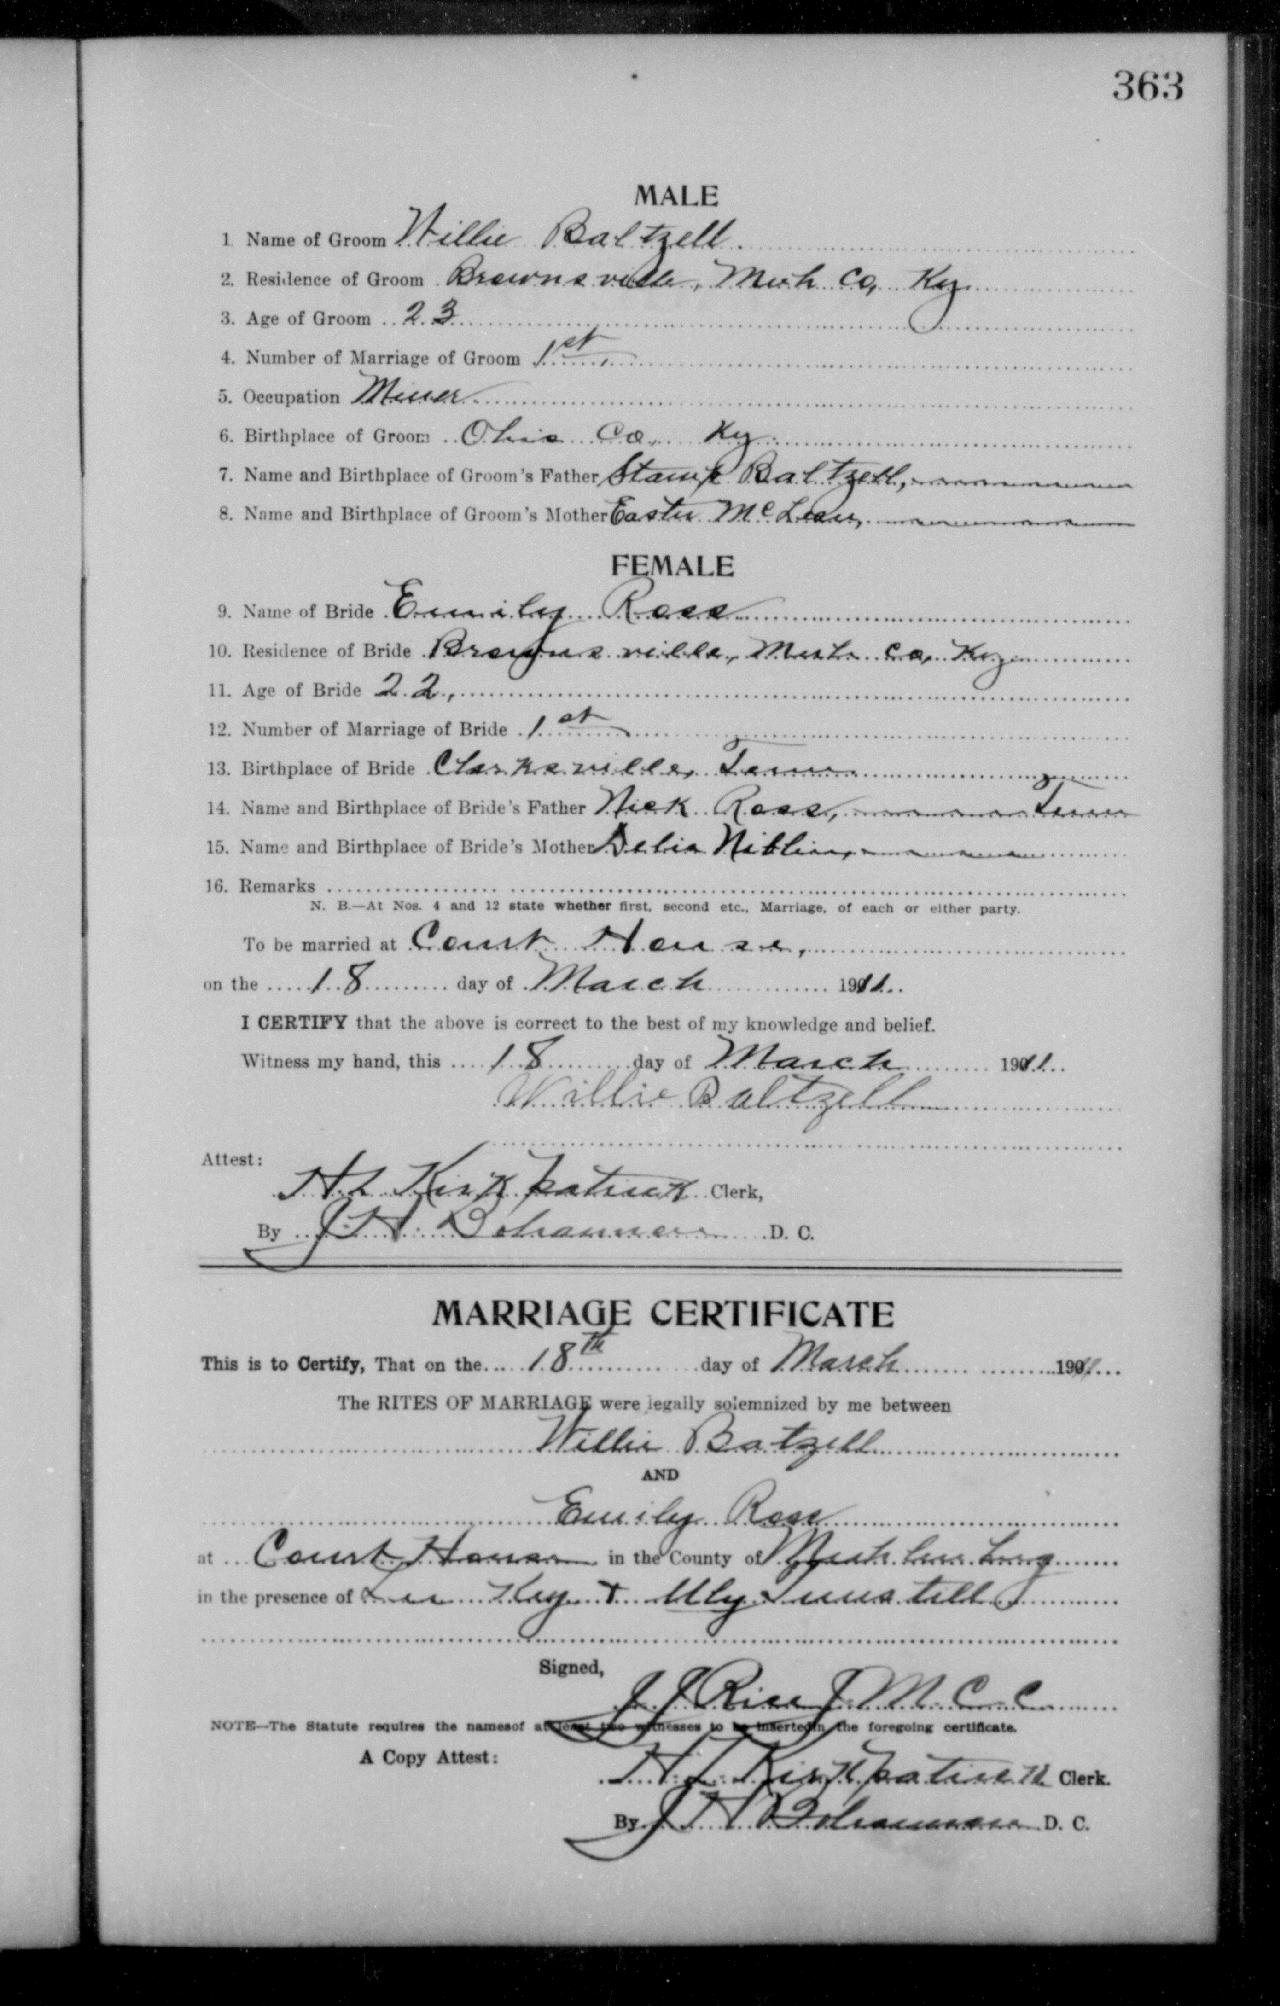 363
MALE
1 Name of Groom Willie Baltzell.
2. Residence of Groom Brownsville, Muh Co, Ky.
3. Age of Groom 23
4. Number of Marriage of Groom 1st
5. Occupation Miner
6. Birthplace of Groom Ohio Co, Ky
7. Name and Birthplace of Groom's Father Stamp Baltzell,
8. Name and Birthplace of Groom's Mother Easter McLean,
FEMALE
9. Name of Bride Emily Ross
10. Residence of Bride Brownsville, Muh Co, Ky
11. Age of Bride 22,
12. Number of Marriage of Bride 1st
13. Birthplace of Bride Clarksville, Tenn
14. Name and Birthplace of Bride's Father Nick Ross, Tenn
15. Name and Birthplace of Bride's Mother Delia
16. Remarks
N. B.—At Nos. 4 and 12 state whether first, second etc., Marriage, of each or either party.
To be married at Court House,
on the 18 day of March 1911
I CERTIFY that the above is correct to the best of my knowledge and belief.
Witness my hand, this 18 day of March 1911
Willie Baltzell
Attest:
H L Kirkpatrick Clerk,
By J H Bohannon D. C.
MARRIAGE CERTIFICATE
This is to Certify, That on the 18th day of March 1911
The RITES OF MARRIAGE were legally solemnized by me between
Willie Batzell
AND
Emily Ross
at Court House in the County of Muhlenberg
in the presence of Lee Key + Tunstill
Signed,
J J Rice J M C C
NOTE—The Statute requires the namesof at least two witnesses to be insertedin the foregoing certificate.
A Copy Attest:
H L Kirkpatrick Clerk.
By J H Bohannon D. C.